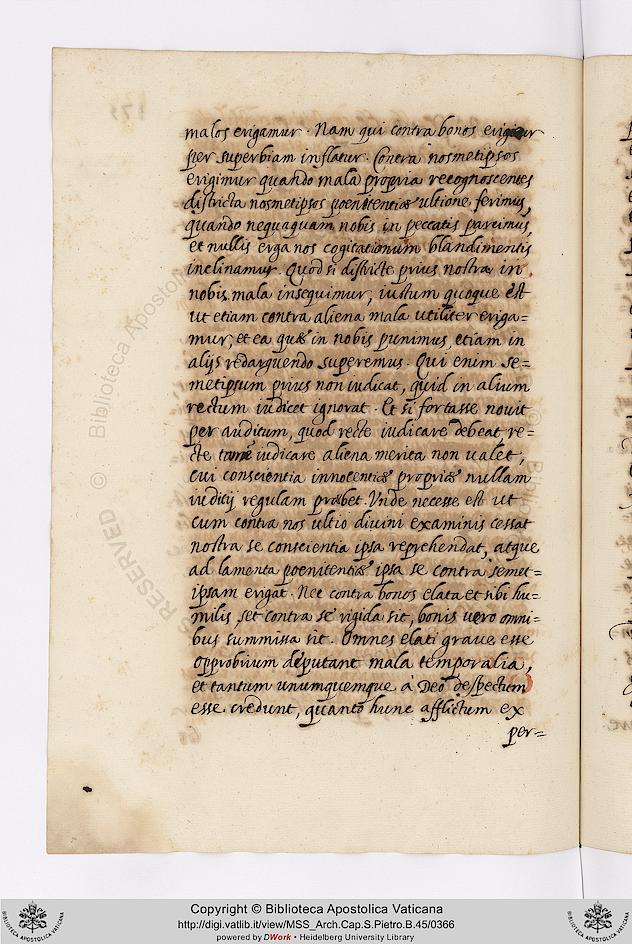 malos erigamur. Nam qui contra bonos erigitur
per superbiam inflatur. Contra nosmetipsos
erigimur quando mala propria recognoscentes
districta nosmetipsos poenitentiæ ultione, ferimus,
quando nequaquam nobis in peccatis parcimus,
et nullis erga nos cogitationum blandimentis
inclinamur. Quod si districte prius nostra in
nobis mala insequimur, iustum quoque est
ut etiam contra aliena mala utiliter eriga=
mur, et ea quæ in nobis punimus, etiam in
alijs redarguendo superemus. Qui enim se=
metipsum prius non iudicat, quid in alium
rectum iudicet ignorat. Et si fortasse novit
per auditum, quod recte iudicare debeat, re=
cte tamē iudicare aliena merita non valet,
cui conscientia innocentiæ propriæ nullam
iuditij regulam præbet. Unde necesse est ut
cum contra nos ultio divini examinis cessat
nostra se conscientia ipsa reprehendat, atque
ad lamenta poenitentiæ ipsa se contra semet=
ipsam erigat. Nec contra bonos elata et sibi hu=
milis, set contra se rigida sit, bonis vero omni=
bus summissa sit. Omnes elati grave esse
opprobrium deputant mala temporalia,
et tantum unumquemque à Deo despectum
esse credunt, quanto hunc afflictum ex
per=
Biblioteca Aposto
© 
S RESERVED
Copyright © Biblioteca Apostolica Vaticana
http://digi.vatlib.it/view/MSS_Arch.Cap.S.Pietro.B.45/0366
powered by DWork • Heidelberg University Library
BIBLIOTECA APOSTOLICA VATICANA
BIBLIOTECA APOSTOLICA VATICANA